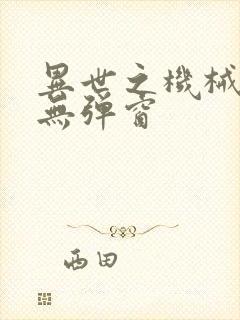 異世之機械
無彈窗
西田